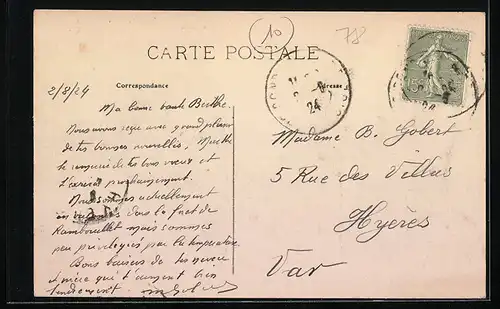 10
78
CARTE POSTALE
Correspondance
Adresse
2/8/24
Ma bonne tante Berthe
Nous avons reçu avec grand plaisir
de tes bonnes nouvelles,
te remercie de tes bons vœux et
t'écrira prochainement.
Nous sommes actuellement
en vacances dans la forêt de
Rambouillet mais sommes
peu privilégiés par la température
Bons baisers de tes neveu
et nièce qui t'aiment bien
tendrement
24
15
Madame B. Gobert
5 Rue des Villas
Hyères
Var